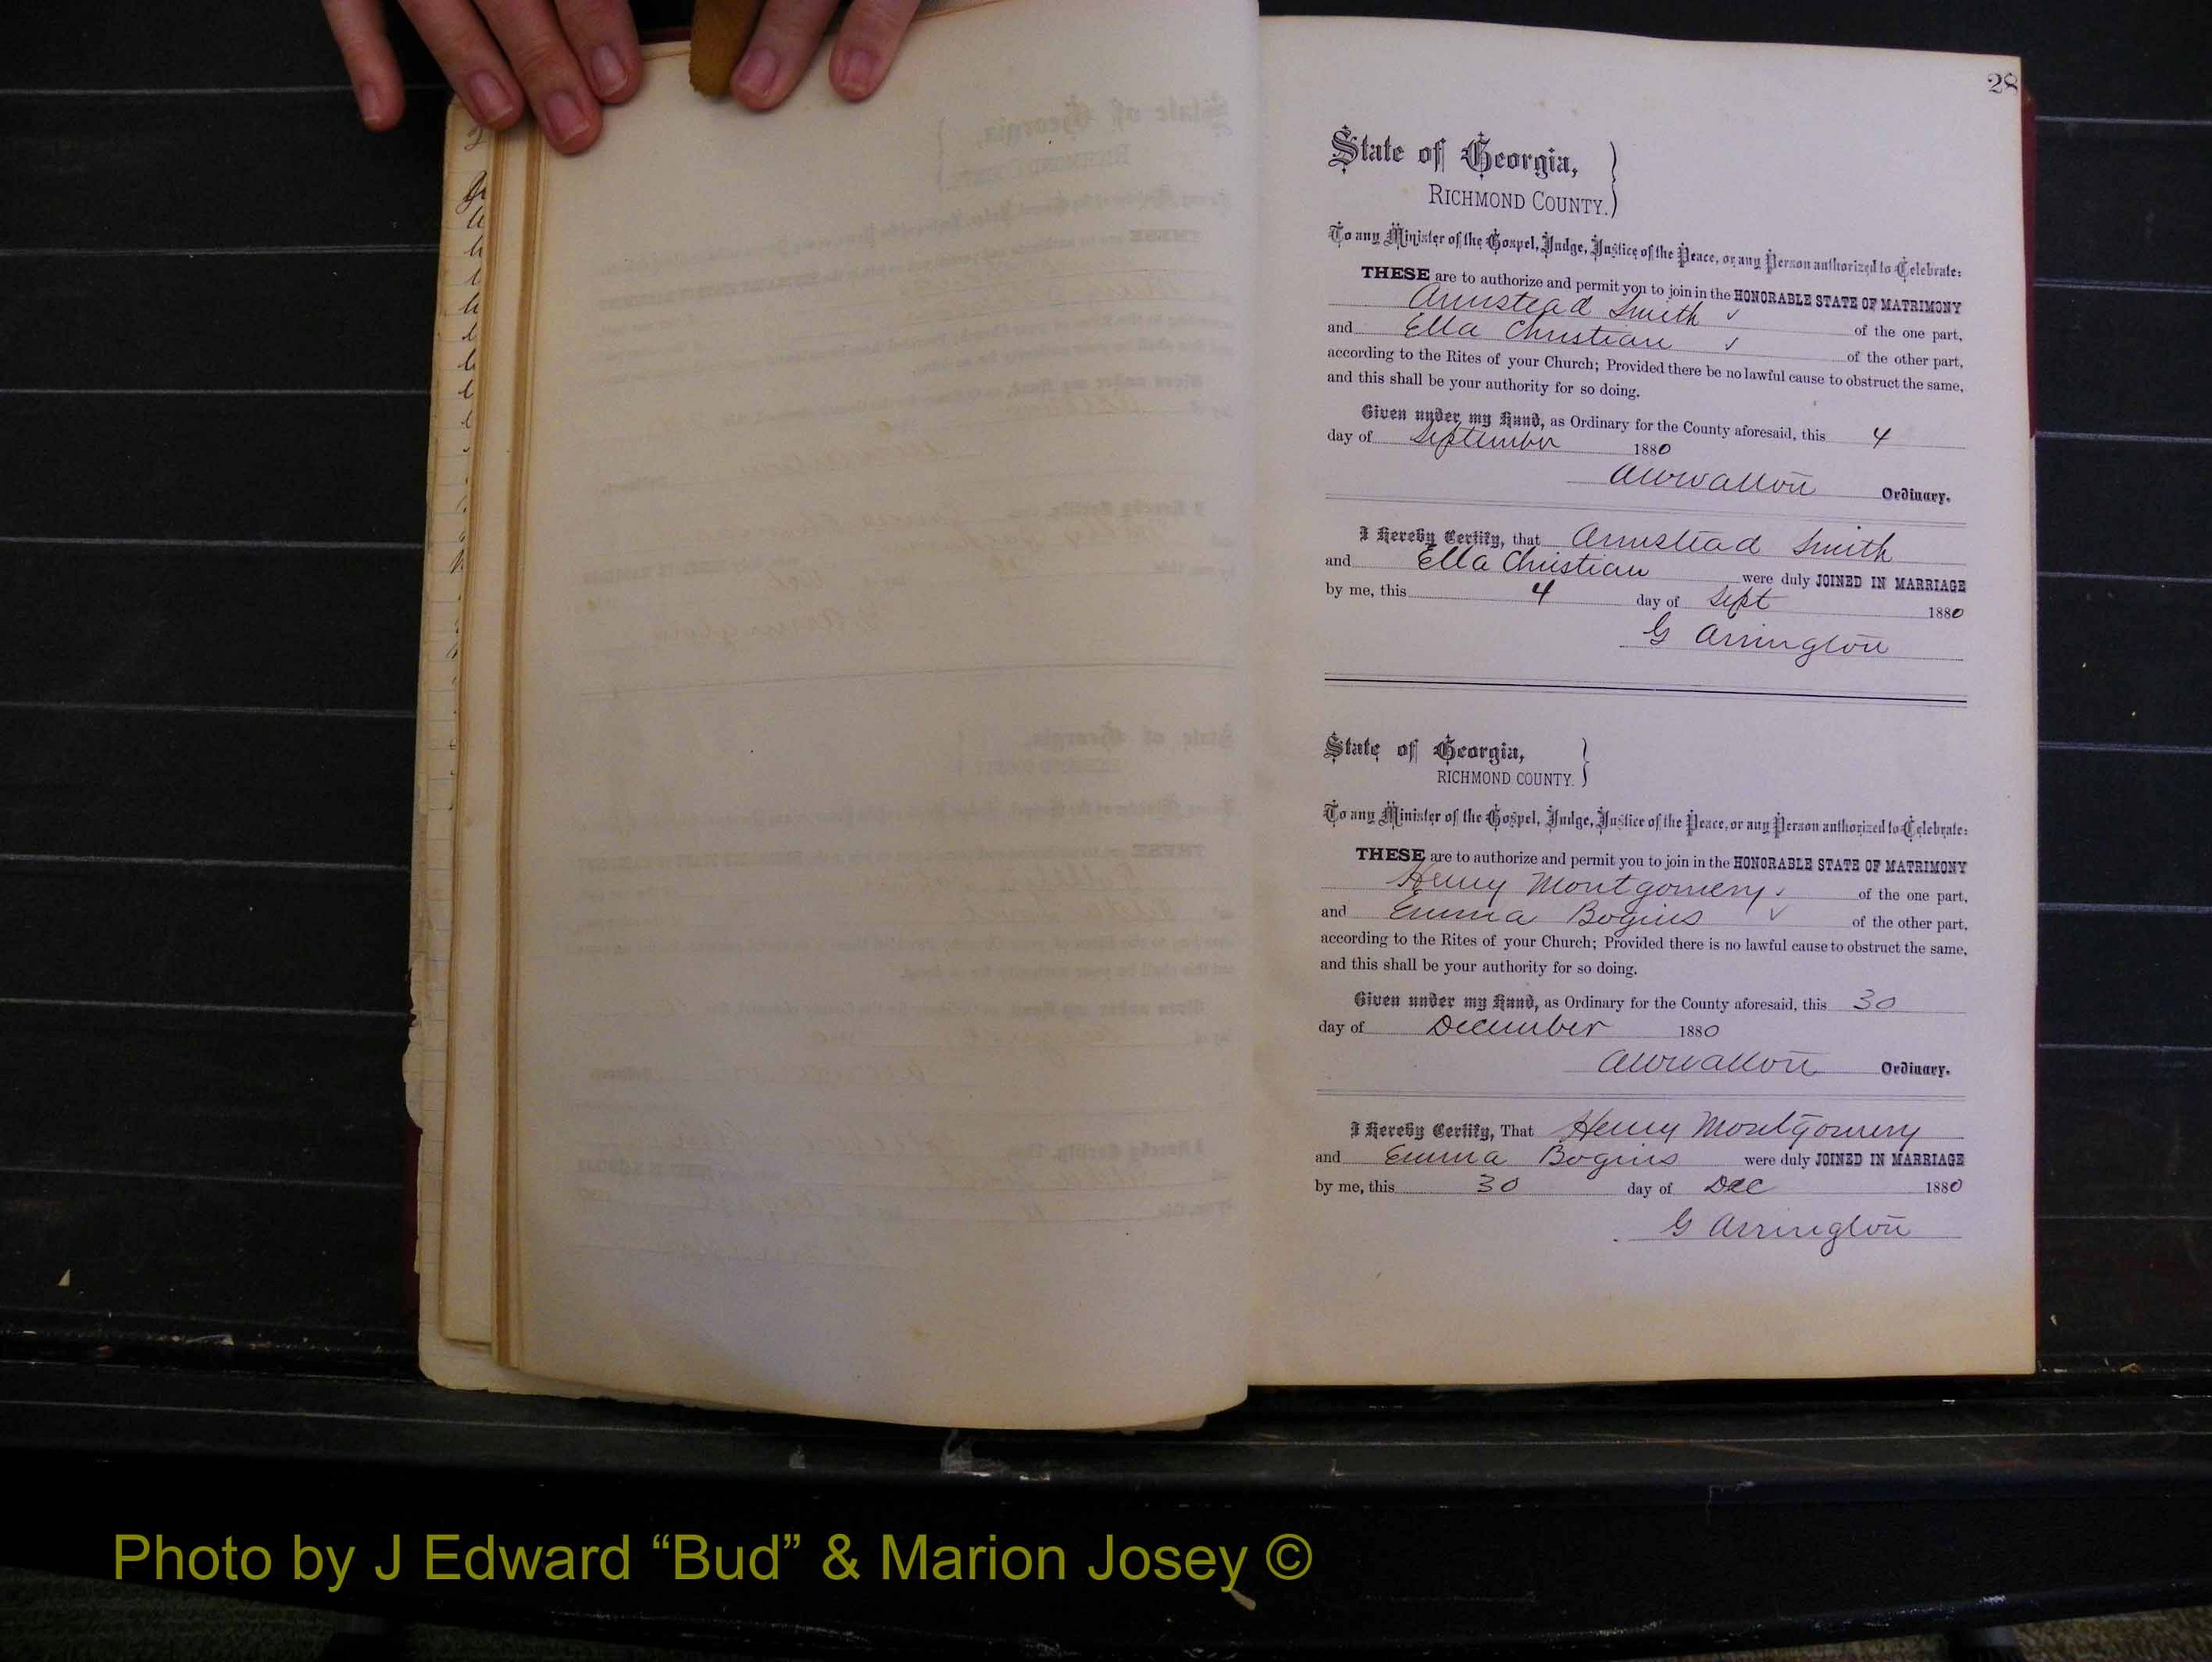 28
State of Georgia,
RICHMOND COUNTY.
To any Minister of the Gospel, Judge, Justice of the Peace, or any Person authorized to Celebrate:
THESE are to authorize and permit you to join in the HONORABLE STATE OF MATRIMONY
Armstead Smith of the one part,
and Ella Christian of the other part,
according to the Rites of your Church; Provided there be no lawful cause to obstruct the same,
and this shall be your authority for so doing.
Given under my Hand, as Ordinary for the County aforesaid, this 4
day of September 1880
Ordinary.
I Hereby Certify, that Armstead Smith
and Ella Christian were duly JOINED IN MARRIAGE
by me, this 4 day of Sept 1880
G Arrington
State of Georgia,
RICHMOND COUNTY.
To any Minister of the Gospel, Judge, Justice of the Peace, or any Person authorized to Celebrate:
THESE are to authorize and permit you to join in the HONORABLE STATE OF MATRIMONY
Henry Montgomery of the one part,
and Emma Bogins of the other part,
according to the Rites of your Church; Provided there is no lawful cause to obstruct the same,
and this shall be your authority for so doing.
Given under my Hand, as Ordinary for the County aforesaid, this 30
day of December 1880
Ordinary.
I Hereby Certify, That Henry Montgomery
and Emma Bogins were duly JOINED IN MARRIAGE
by me, this 30 day of Dec 1880
G Arrington
Photo by J Edward “Bud” & Marion Josey ©